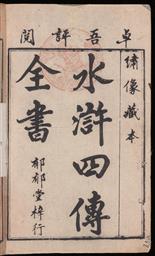 卓吾評閱
繡像藏本
水滸四傳
全書
郁郁堂梓行